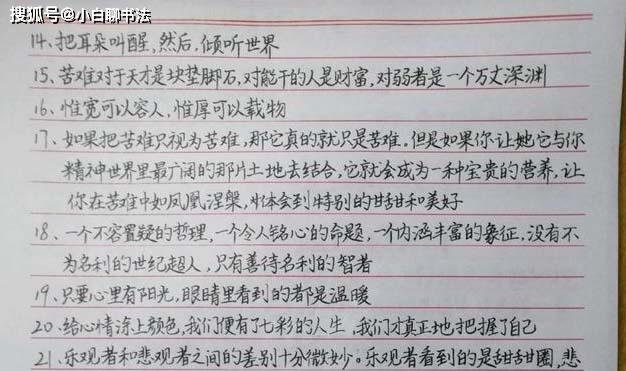 搜狐号@小白聊书法
14、把耳朵叫醒,然后,倾听世界
15、苦难对于天才是块垫脚石,对能干的人是财富,对弱者是一个万丈深渊
16、惟宽可以容人,惟厚可以载物
17、如果把苦难只视为苦难,那它真的就只是苦难。但是如果你让她它与你
精神世界里最广阔的那片土地去结合,它就会成为一种宝贵的营养,让
你在苦难中如凤凰涅槃,体会到特别的甘甜和美好
18、一个不容置疑的哲理,一个令人铭心的命题,一个内涵丰富的象征,没有不
为名利的世纪超人,只有善待名利的智者
19、只要心里有阳光,眼睛里看到的都是温暖
20、给心情涂上颜色,我们便有了七彩的人生,我们才真正地把握了自己
21、乐观者和悲观者之间的差别十分微妙。乐观者看到的是甜甜圈,悲